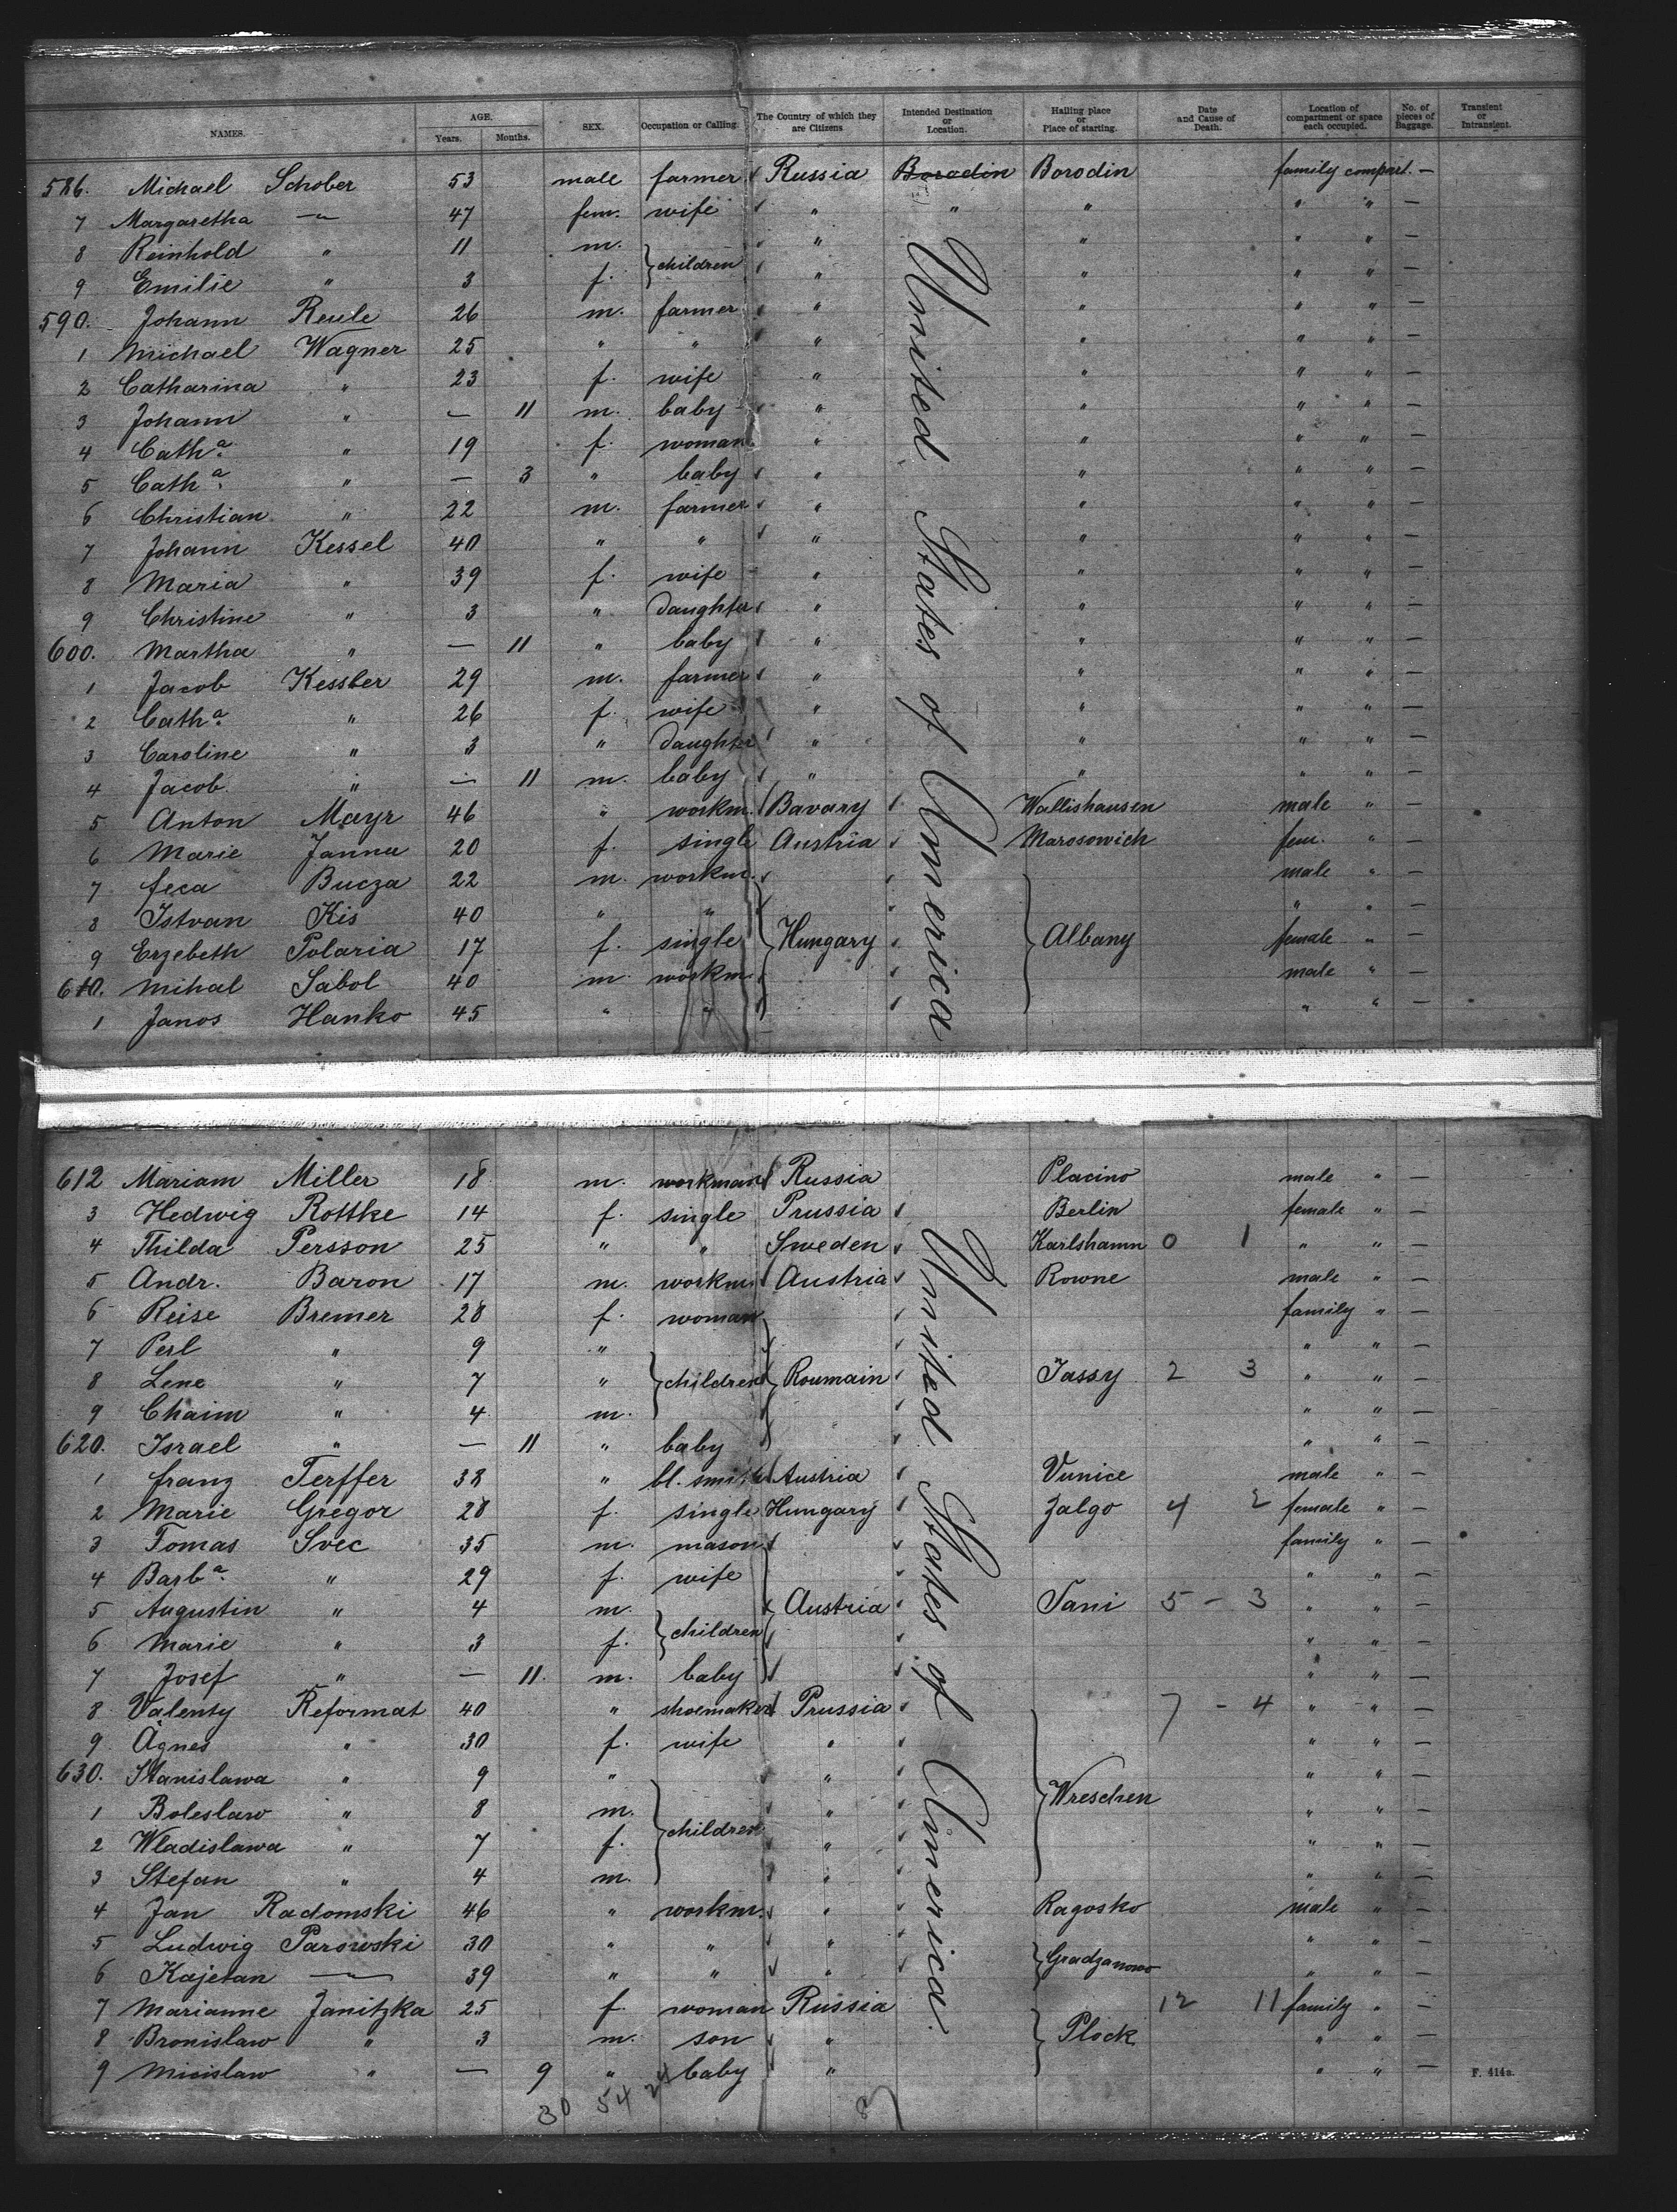 NAMES. AGE. Years. Months. SEX. Occupation or Calling. The Country of which they are Citizens Intended Destination or Location. Hailing place or Place of starting. Date and Cause of Death. Location of compartment or space each occupied. No. of pieces of Baggage. Transient or Intransient.
586. Michael Schober 53 male farmer Russia Borodin Borodin family compart. —
7 Margaretha —"— 47 fem. wife " " " " " —
8 Reinhold " 11 m. } children " " " " —
9 Emilie " 3 f. " " " " —
590. Johann Reule 26 m. farmer " " " " —
1 Michael Wagner 25 " " " " " " —
2 Catharina " 23 f. wife " " " " —
3 Johann " — 11 m. baby " " " " —
4 Cath.a " 19 f. woman " " " " —
5 Cath.a " — 3 " baby " " " " —
6 Christian " 22 m. farmer " " " " —
7 Johann Kessel 40 " " " " " " —
8 Maria " 39 f. wife " " " " —
9 Christine " 3 " daughter " " " " —
600. Martha " — 11 " baby " " " " —
1 Jacob Kessler 29 m. farmer " " " " —
2 Cath.a " 26 f. wife " " " " —
3 Caroline " 3 " daughter " " " " —
4 Jacob " — 11 m. baby " " " " —
5 Anton Mayr 46 " workm. Bavary Wallishausen male " —
6 Marie Janna 20 f. single Austria Marosowich fem. " —
7 feca Bucza 22 m. workm. male " —
8 Istvan Kis 40 " " " " —
9 Erzebeth Polaria 17 f. single } Hungary } Albany female " —
610. Mihal Sabol 40 m workm. male " —
1 Janos Hanko 45 " " " " —
United States of America
612 Mariam Miller 18 m. workman Russia Placino male " —
3 Hedwig Rottke 14 f. single Prussia Berlin female " —
4 Thilda Persson 25 " " Sweden Karlshamn 0 1 " " —
5 Andr. Baron 17 m. workm. Austria Rowne male " —
6 Reise Bremer 28 f. woman family " —
7 Perl " 9 " " " —
8 Lene " 7 " } children } Roumain Jassy 2 3 " " —
9 Chaim " 4 m. " " —
620. Israel " — 11 " baby " " —
1 franz Terffer 38 " bl. smith Austria Vunice male " —
2 Marie Gregor 28 f. single Hungary Zalgo 4 2 female " —
3 Tomas Svec 35 m. mason family " —
4 Barb.a " 29 f. wife " " —
5 Augustin " 4 m. Austria Tani 5 – 3 " " —
6 Marie " 3 f. } children " " —
7 Josef " — 11. m. baby " " —
8 Valenty Reformat 40 " shoemaker Prussia 7 – 4 " " —
9 Agnes " 30 f. wife " " " —
630. Stanislawa " 9 " " " " —
1 Boleslaw " 8 m. } children " } Wreschen " " —
2 Wladislawa " 7 f. " " " —
3 Stefan " 4 m. " " " —
4 Jan Radomski 46 " workm. " Ragosko male " —
5 Ludwig Parowski 30 " " " } Gradzanowo " " —
6 Kajetan —"— 39 " " " " " —
7 Marianne Janitzka 25 f. woman Russia 12 11 family " —
8 Bronislaw " 3 m. son " } Plock " " —
9 Micislaw " — 9 " baby " " " —
United States of America.
30 54 24
F. 414a.